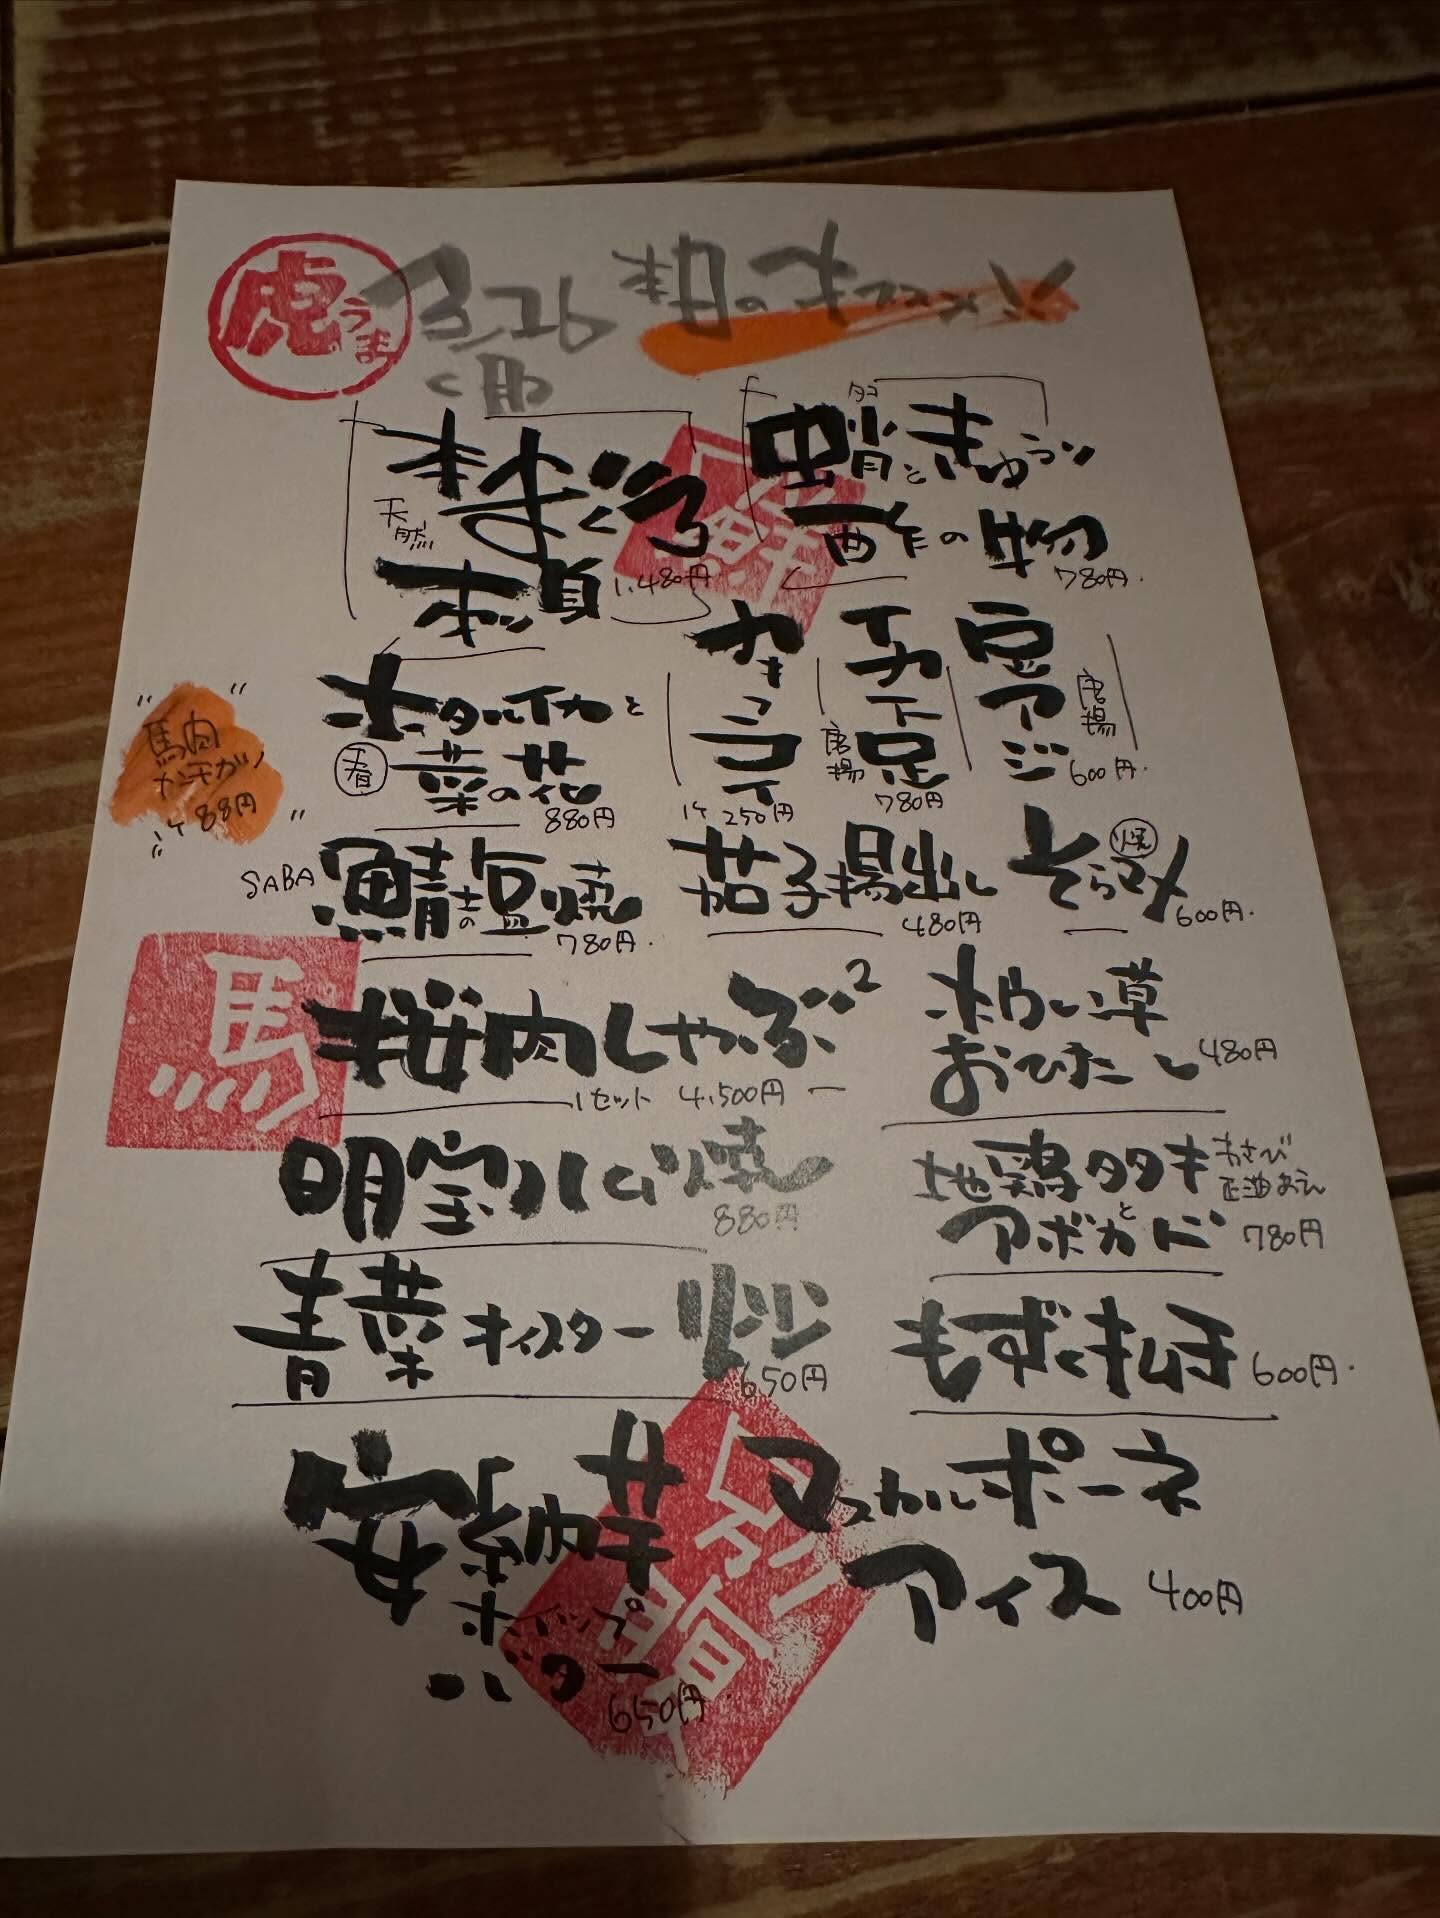 虎うま
3/26 本日のオススメ!!
天然
本まぐろ
刺身 1,480円
タコ
蛸ときゅうり
酢の物 780円
ホタルイカと
春 菜の花 880円
カキフライ 1ケ 250円
唐揚 780円
豆アジ 唐揚 600円
"馬肉
1ケ 88円"
SABA 鯖の塩焼 780円
茄子揚出し 480円
そらマメ 焼 600円
馬 桜肉しゃぶ² 1セット 4,500円
ホウレン草
おひたし 480円
明宝ハム焼 880円
地鶏タタキと わさび正油あえ
アボカド 780円
青菜オイスター 650円
もずく 600円
安納芋
ホイップ
バター 650円
マスカルポーネ
アイス 400円